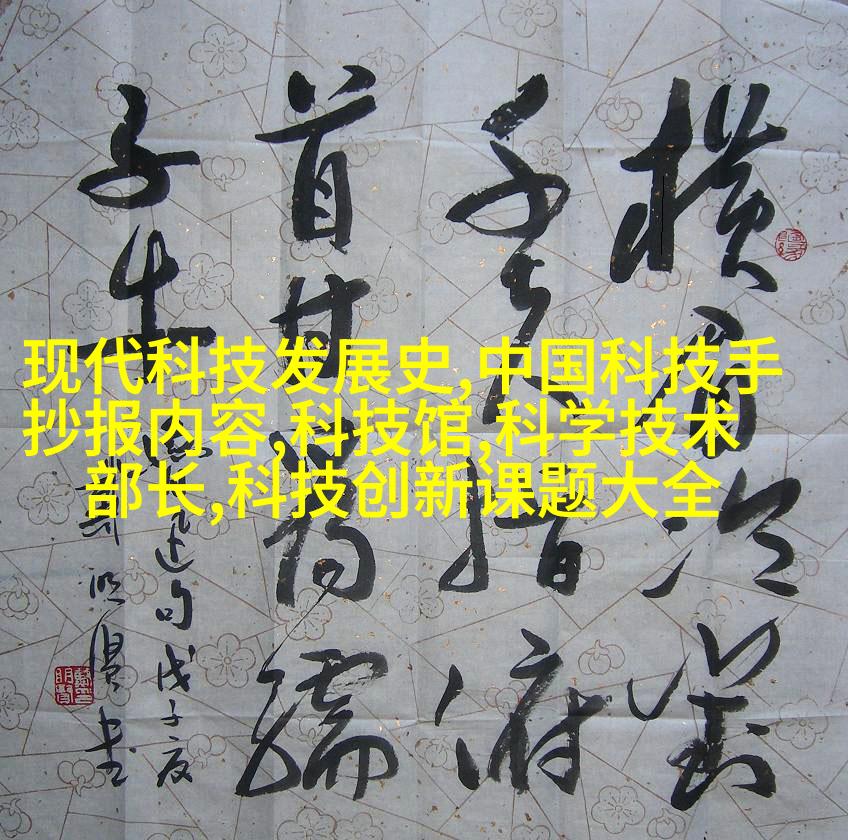 现代科技发展史,中国科技手
抄报内容,科技馆,科学技术
部长,科技创新课题大全
横眉冷對
千夫指俯
首甘為孺
子牛
迅句戊子夏
明書